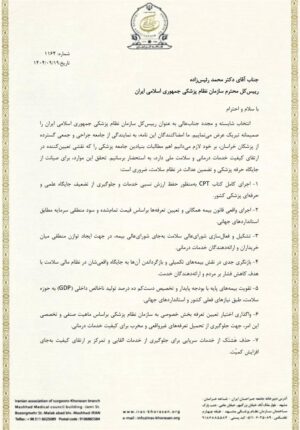 شماره: ۱۱۶۲
تاریخ: ۱۴۰۳/۰۹/۱۹
جناب آقای دکتر محمد رئیس‌زاده
رییس‌کل محترم سازمان نظام پزشکی جمهوری اسلامی ایران
با سلام و احترام
انتخاب شایسته و مجدد جناب‌عالی به عنوان رییس‌کل سازمان نظام پزشکی جمهوری اسلامی ایران را
صمیمانه تبریک عرض می‌نماییم. ما امضاکنندگان این نامه، به نمایندگی از جامعه جراحی و جمعی گسترده
از پزشکان خراسان، بر خود لازم می‌دانیم اهم مطالبات بنیادین جامعه پزشکی را که نقشی تعیین‌کننده در
ارتقای کیفیت خدمات درمانی و سلامت ملی دارد، به استحضار برسانیم. تحقق این موارد، برای صیانت از
جایگاه حرفه پزشکی و تضمین عدالت در نظام سلامت، ضروری است:
۱- اجرای کامل کتاب CPT به‌منظور حفظ ارزش نسبی خدمات و جلوگیری از تضعیف جایگاه علمی و
حرفه‌ای پزشکی کشور.
۲- اجرای واقعی قانون بیمه همگانی و تعیین تعرفه‌ها براساس قیمت تمام‌شده و سود منطقی سرمایه مطابق
استانداردهای جهانی.
۳- تشکیل و فعال‌سازی شورای‌عالی سلامت به‌جای شورای‌عالی بیمه، در جهت ایجاد توازن منطقی میان
خریداران و ارائه‌دهندگان خدمات درمانی.
۴- بازنگری جدی در نقش بیمه‌های تکمیلی و بازگرداندن آن‌ها به جایگاه واقعی‌شان در نظام مالی سلامت با
هدف کاهش فشار بر مردم و ارائه‌دهندگان خدمت.
۵- تقویت بیمه‌های پایه با بودجه پایدار و تخصیص دست‌کم ده درصد تولید ناخالص داخلی (GDP) به حوزه
سلامت، طبق نیازهای فعلی کشور و استانداردهای جهانی.
۶- واگذاری اختیار تعیین تعرفه بخش خصوصی به سازمان نظام پزشکی براساس ماهیت صنفی و تخصصی
این امر، جهت جلوگیری از تحمیل تعرفه‌های غیرواقعی و مخرب برای کیفیت خدمات درمانی.
۷- حذف هشتک از خدمات سرپایی برای جلوگیری از خدمات القایی و تمرکز بر ارتقای کیفیت به‌جای
افزایش کمیّت.
Iranian association of surgeons-Khorasan branch